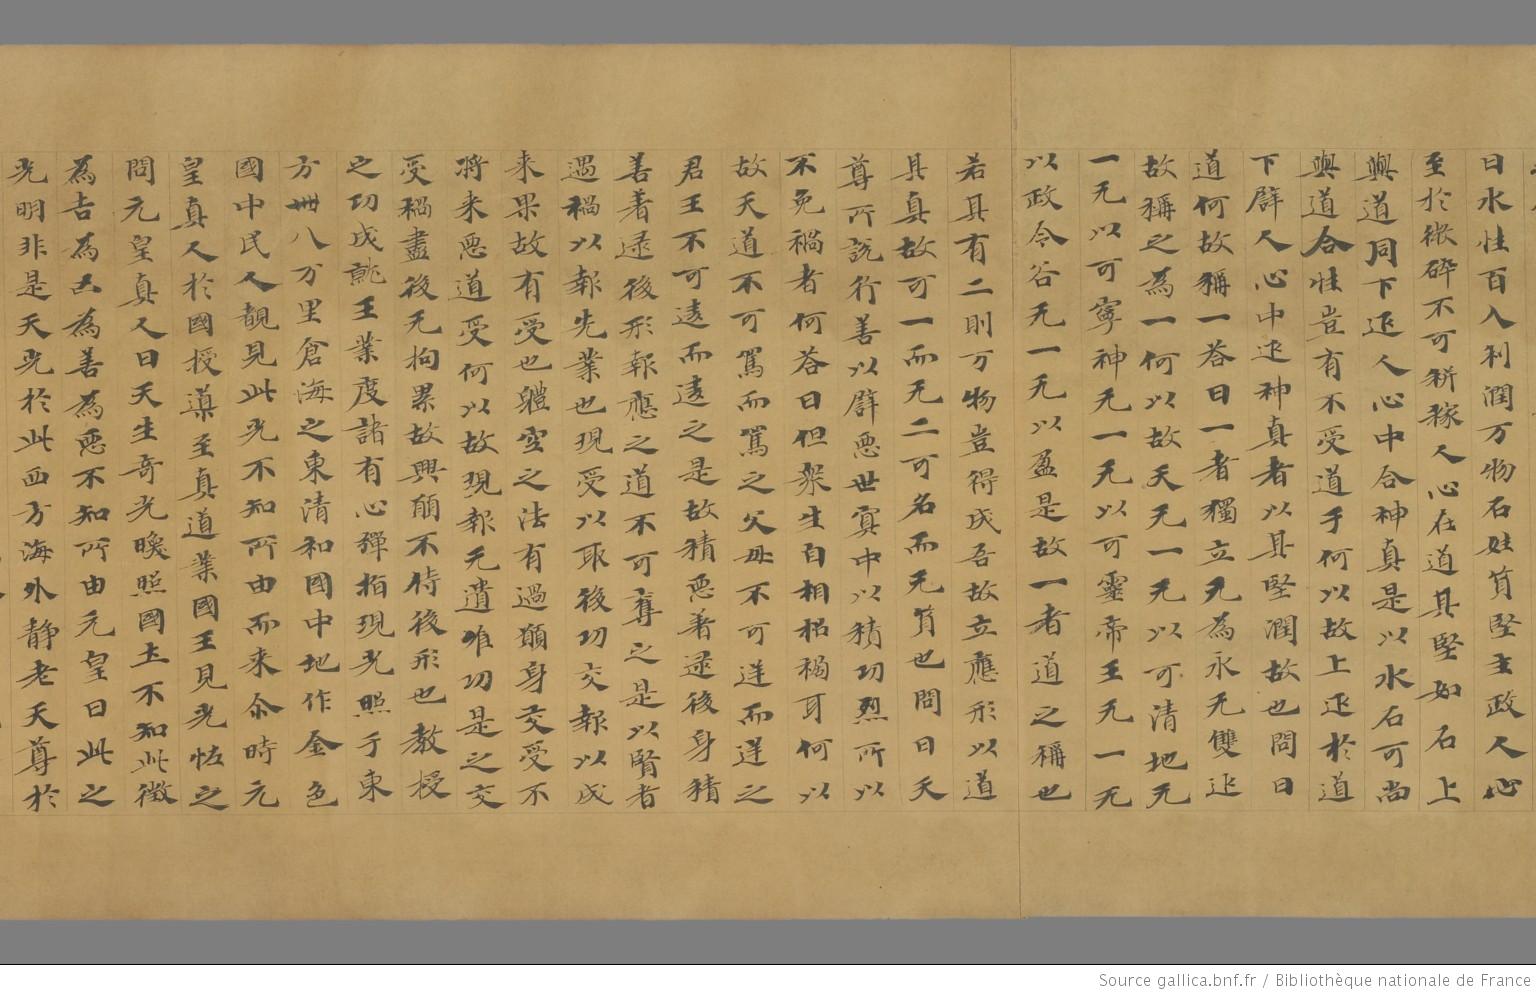 曰水性百入利潤万物石性質堅主政人心
至於微碎不可耕稼人心在道其堅如石上
與道同下近人心中合神真是以水石可尚
與道合性豈有不受道乎何以故上近於道
下辟人心中近神真者以其堅潤故也問曰
道何故稱一荅曰一者獨立无為永无雙近
故稱之為一何以故天无一无以可清地无
一无以可寧神无一无以可靈帝王无一无
以政令谷无一无以盈是故一者道之稱也
若其有二則万物豈得成吾故立應形以道
其真故可一而无二可名而无質也問曰天
尊所說行善以辟惡世寞中以積功烈所以
不免禍者何荅曰但衆生自相招禍耳何以
故天道不可罵而罵之父母不可逆而逆之
君王不可違而違之是故積惡著逮後身積
善著逮後形報應之道不可奪之是以賢者
遇禍以報先業也現受以取後功交報以成
来果故有受也軆空之法有過願身交受不
將来惡道受何以故現報无遺唯功是之交
受禍盡後无拘累故興願不待後形也教授
之功成就王業度諸有心彈指現光照于東
方卌八万里倉海之東清和國中地作金色
國中民人覩見此光不知所由而来尒時元
皇真人於國授導至真道業國王見光恠之
問元皇真人曰天生奇光暖照國土不知此徵
為吉為凶為善為惡不知所由元皇曰此之
光明非是天光於此西方海外静老天尊於